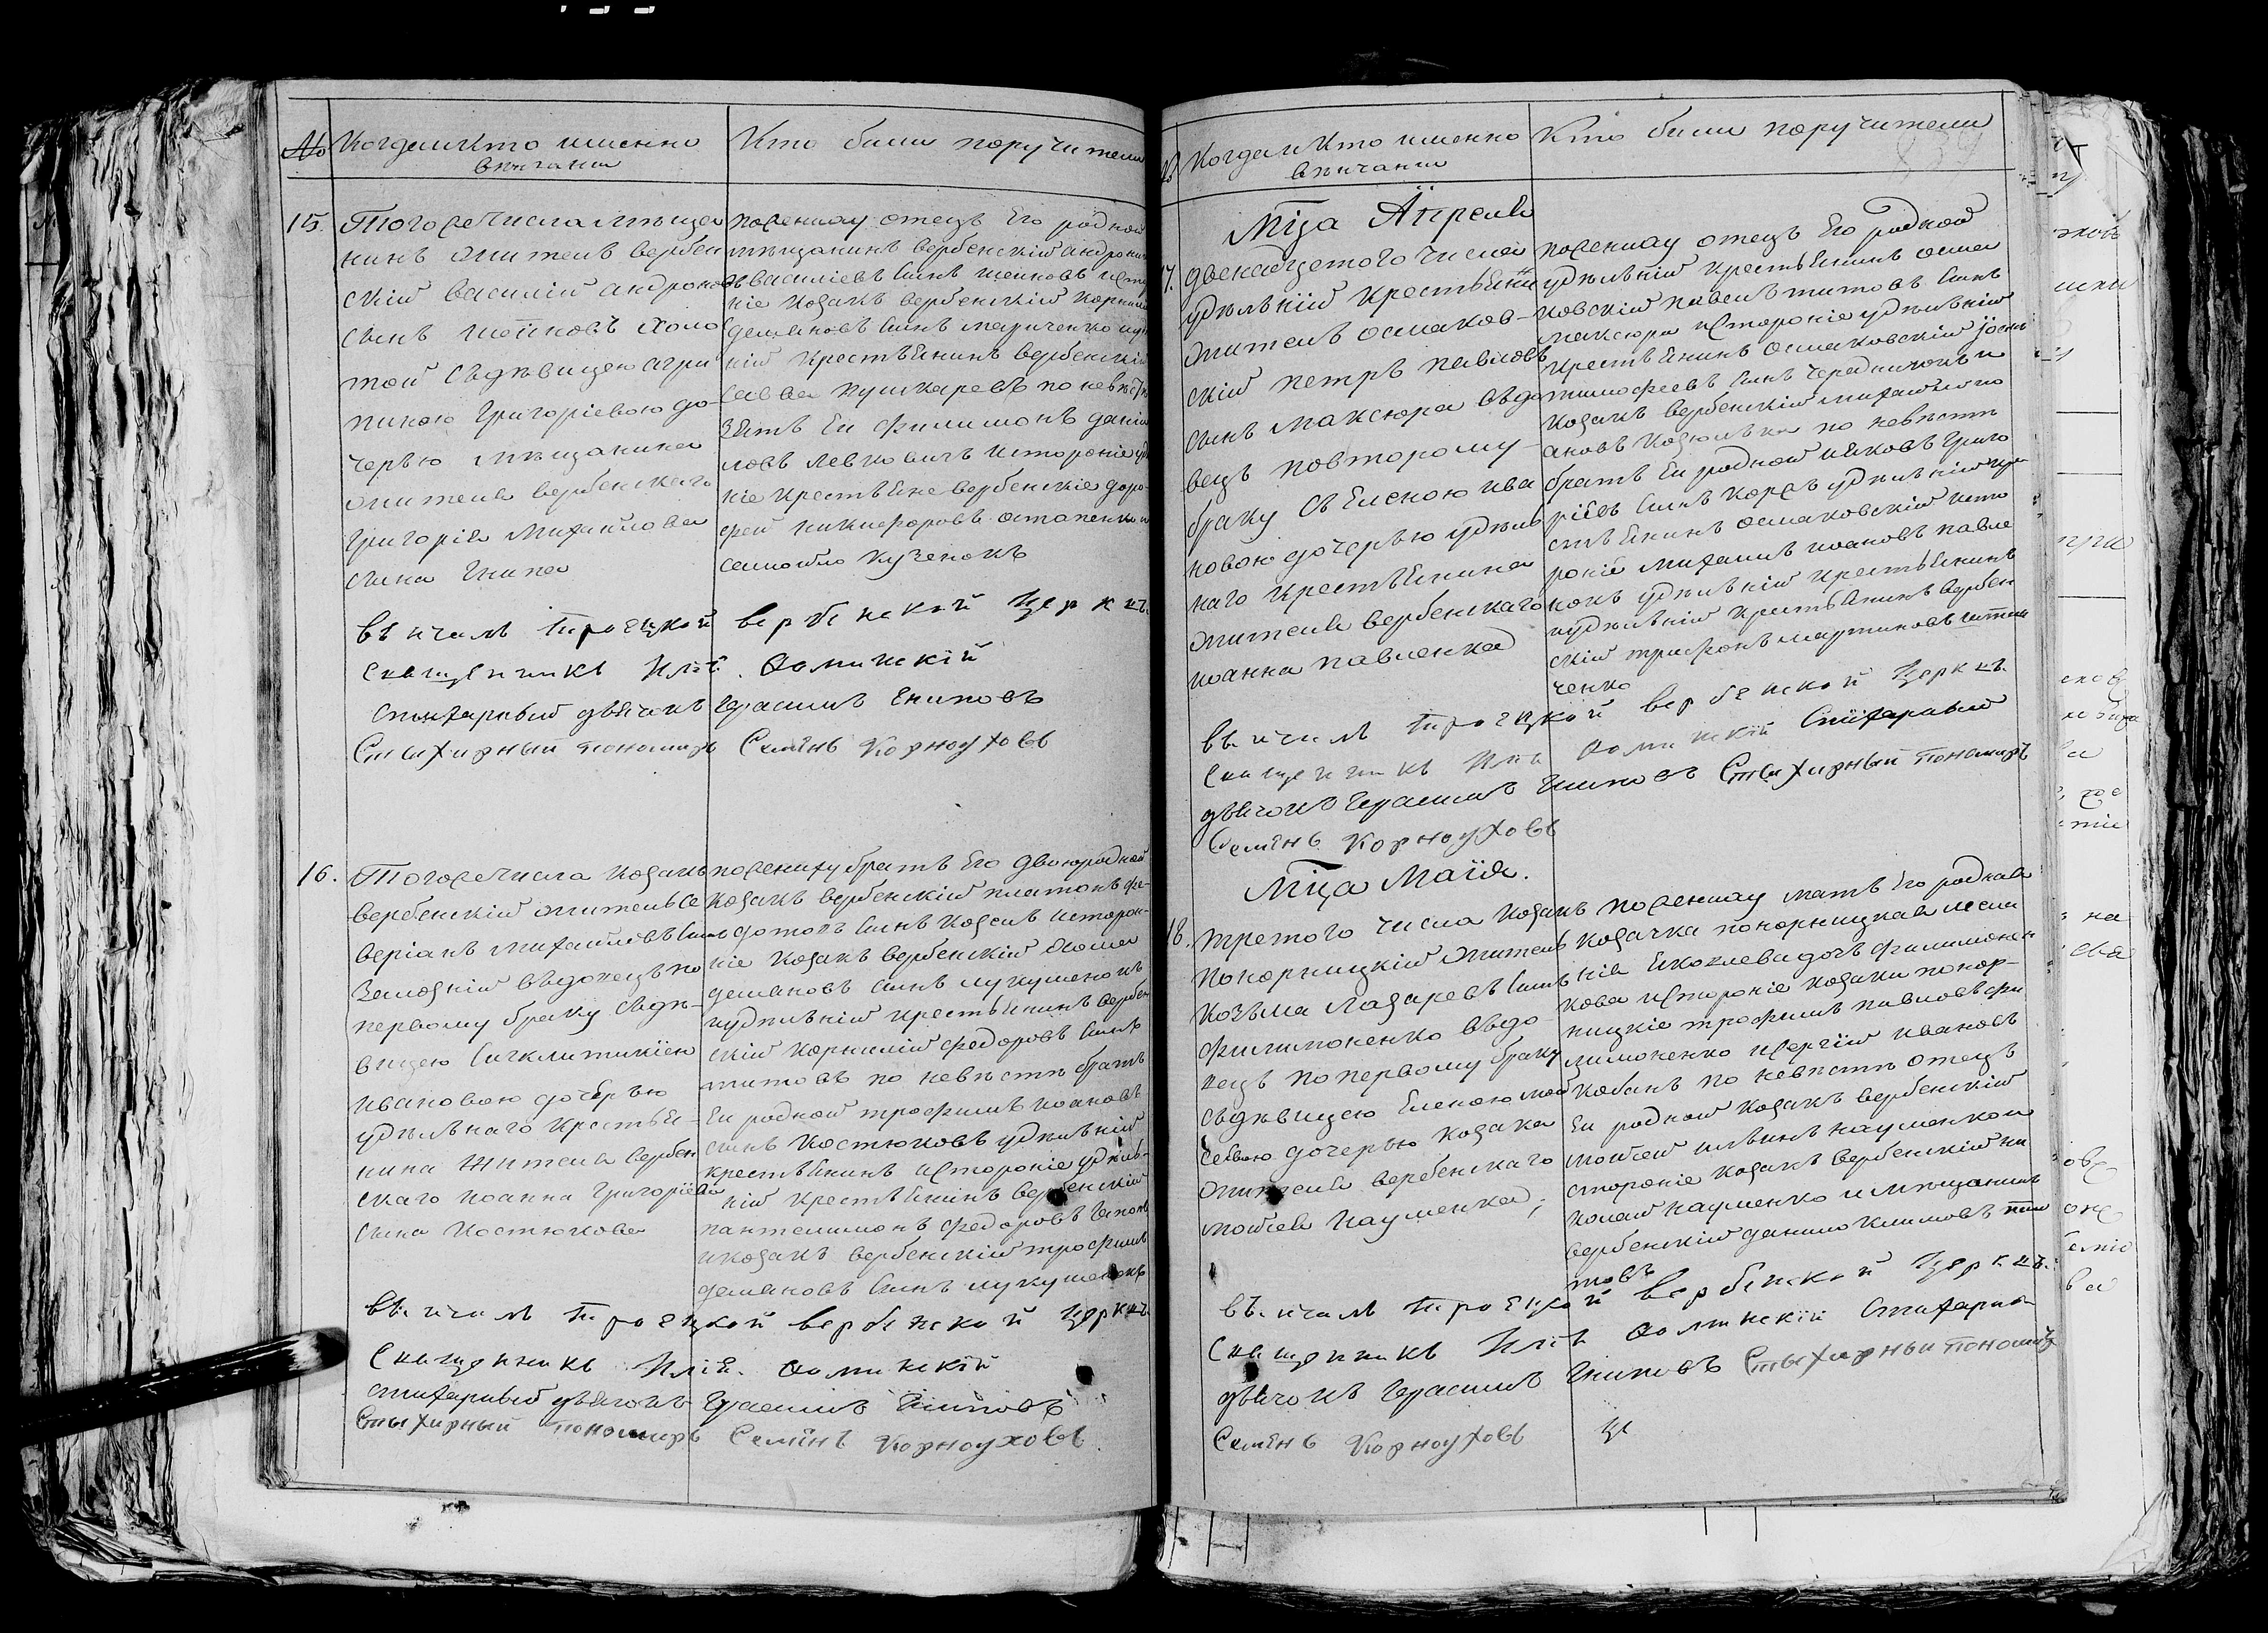 №
Когда и Кто именно
венчани
Кто были поручители
15.
Того же Числа мещо
нинъ жителъ вербен
скій василій андроновъ
сынъ шейковъ холо
той съ девицею агри
пиною Григоріевою до-
черъю мещанина
жителя вербенскаго
Григорія Михайлова
сына Гнипа
по жениху отецъ Его родной
мещанинъ вербенскій андроникъ
василіевъ сынъ шейковъ и сторо
ніе козакъ вербенскій корнилій
демяновъ сынъ марченко
ній крестьянинъ вербенскій
савва пушкаревъ по невесте
зять Ея филимонъ даніи
ловъ левковичъ и стороніе
ніе крестьяне вербенскіе доро-
фей никифоровъ остапенко и
самойло кученокъ
венчалъ троецкой вербенской церкви
священникъ Илія Долинскій
стихарный дьячокъ Герасимъ Гниповъ
Стыхирный пономаръ Семенъ Корноуховъ
16.
Того же Числа козакъ
вербенскій жителъ се
веріанъ михайловъ сынъ
Замозній въдовецъ по
первому браку съ де-
вицею синклитикіею
ивановою дочерью
уделънаго крестья-
нина жителя вербен
скаго иоанна Григоріева
сына Костюкова
по жениху братъ Его двоюродной
козакъ вербенскій платонъ фе-
дотовъ сынъ козелъ и сторон-
ніе козакъ вербенскій Фома
демановъ сынъ лукушенокъ
и уделній крестьянинъ вербен
скій корнилій федоровъ сынъ
титовъ по невесте братъ
Ея родной трофимъ иоановъ
сынъ костюковъ уделъній
крестьянинъ и стороніе уделъ-
ній крестьянинъ вербенскій
пантелимонъ федоровъ
и козакъ вербенскій трофимъ
демановъ сынъ лукушенокъ
венчалъ троецкой вербенской церкви
Священникъ Илія Долинскій
стихарный дьячокъ Герасимъ Гниповъ
Стыхирный пономаръ Семенъ Корноуховъ
Когда и Кто именно
венчани
Кто были поручители
Мца Апреля
17.
двенадцетого Числа
уделъній крестьянинъ
жителъ осмаков-
скій петръ павловъ
сынъ максюра въдо
вецъ повторому
браку съ Еленою ива
новою дочеръю уделъ
наго крестьянина
жителя вербенскаго
иоанна павленка
по жениху отецъ Его родной
уделъній крестьянинъ осма
ковскій павелъ титовъ сынъ
максюра и стороніе уделъній
крестьянинъ осмаковскій
тимофеевъ сынъ чередникокъ и
козакъ вербенскій михайло
ановъ козюлька по невесте
братъ Ея родной иаковъ Григо
ріевъ сынъ корсъ уделъній кре
стьянинъ осмаковскій и сто
роніе михаилъ иоановъ павле
нокъ уделъній крестьянинъ
и уделъній крестьянинъ вербен
скій трифонъ мартиновъ
ченко
венчалъ троецкой вербенской церкви
священникъ Илія Долинскій Стихарный
дьячокъ Герасимъ Гниповъ Стыхирный пономаръ
Семенъ Корноуховъ
Мца Маія.
18.
третого Числа козакъ
понорницкій жителъ
козъма лазаревъ сынъ
филимоненко въдо
вецъ по первому браку
съ девицею Еленою мой
сеевою дочеръю козака
жителя вербенскаго
мойсея науменка;
по жениху мать Его родная
козачка понорницкая
нія Яковлева дочъ филимонен
кова и стороніе козаки понор-
ницкіе трофимъ павловъ фи
лимоненко и сергій ивановъ
кобанъ по невесте отецъ
Ея родной козакъ вербенскій
мойсей илъинъ науменко и
стороніе козакъ вербенскій ни
колай науменко и мещанинъ
вербенскій данило климовъ
товъ
венчалъ троецкой вербенской церкви
Священникъ Илія Долинскій стихарной
дьячокъ Герасимъ Гниповъ Стыхирный пономаръ
Семенъ Корноуховъ